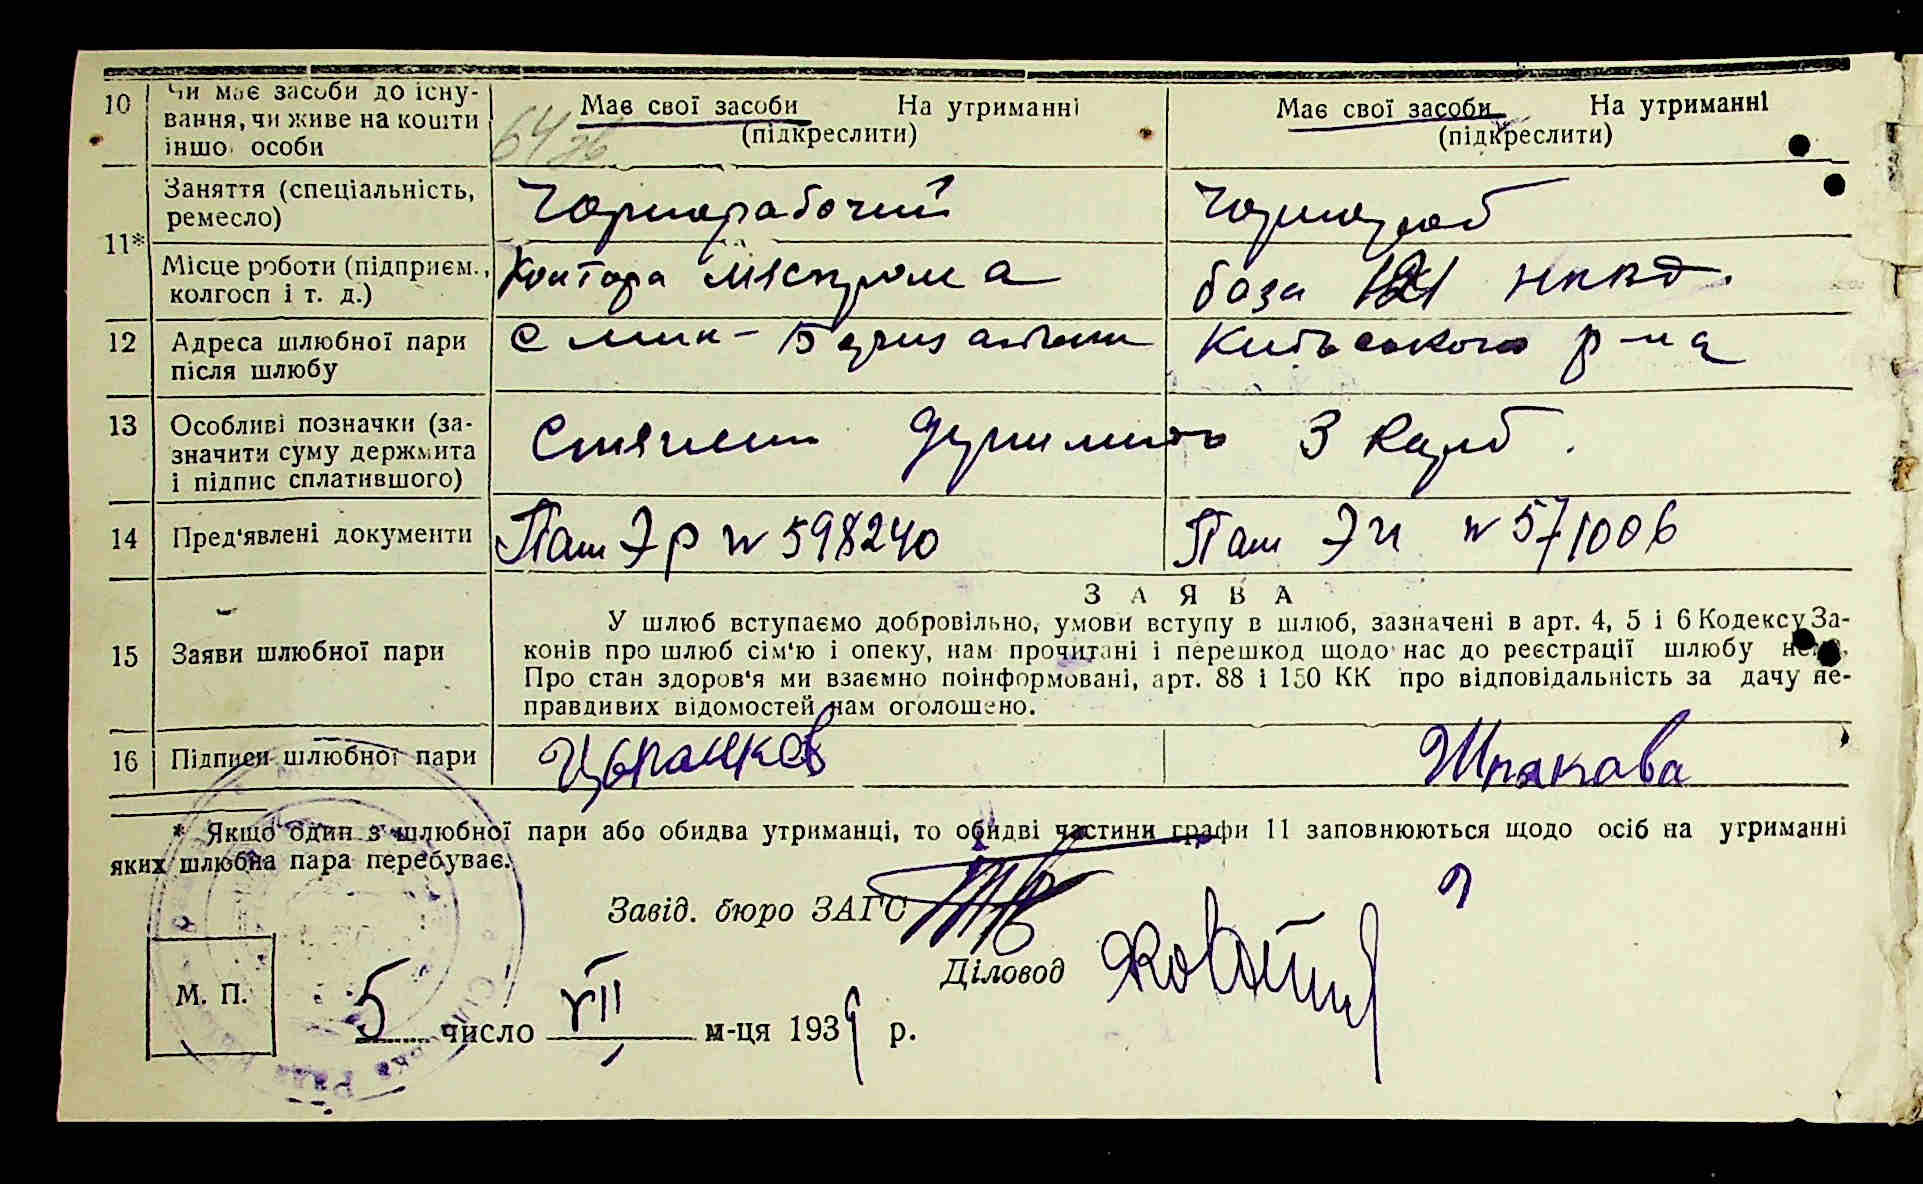 10
Чи має засоби до існу-
вання, чи живе на кошти
іншої особи
Має свої засоби На утриманні
(підкреслити)
Має свої засоби На утриманні
(підкреслити)
11*
Заняття (спеціальність,
ремесло)
Чорнорабочий
Чорнораб
Місце роботи (підприєм.,
колгосп і т. д.)
Контора міспрома
база НКВД.
12
Адреса шлюбної пари
після шлюбу
р-на
13
Особливі позначки (за-
значити суму держмита
і підпис сплатившого)
3 карб.
14
Пред'явлені документи
Паш ЭР N 598240
Паш ЭИ N 571006
ЗАЯВА
15
Заяви шлюбної пари
У шлюб вступаємо добровільно, умови вступу в шлюб, зазначені в арт. 4, 5 і 6 Кодексу За-
конів про шлюб сім'ю і опеку, нам прочитані і перешкод щодо нас до реєстрації шлюбу нема.
Про стан здоров'я ми взаємно поінформовані, арт. 88 і 150 КК про відповідальність за дачу не-
правдивих відомостей нам оголошено.
16
Підписи шлюбної пари
* Якщо один з шлюбної пари або обидва утриманці, то обидві частини графи 11 заповнюються щодо осіб на утриманні
яких шлюбна пара перебуває.
Завід. бюро ЗАГС
Діловод
М. П.
5 число VII м-ця 1939 р.